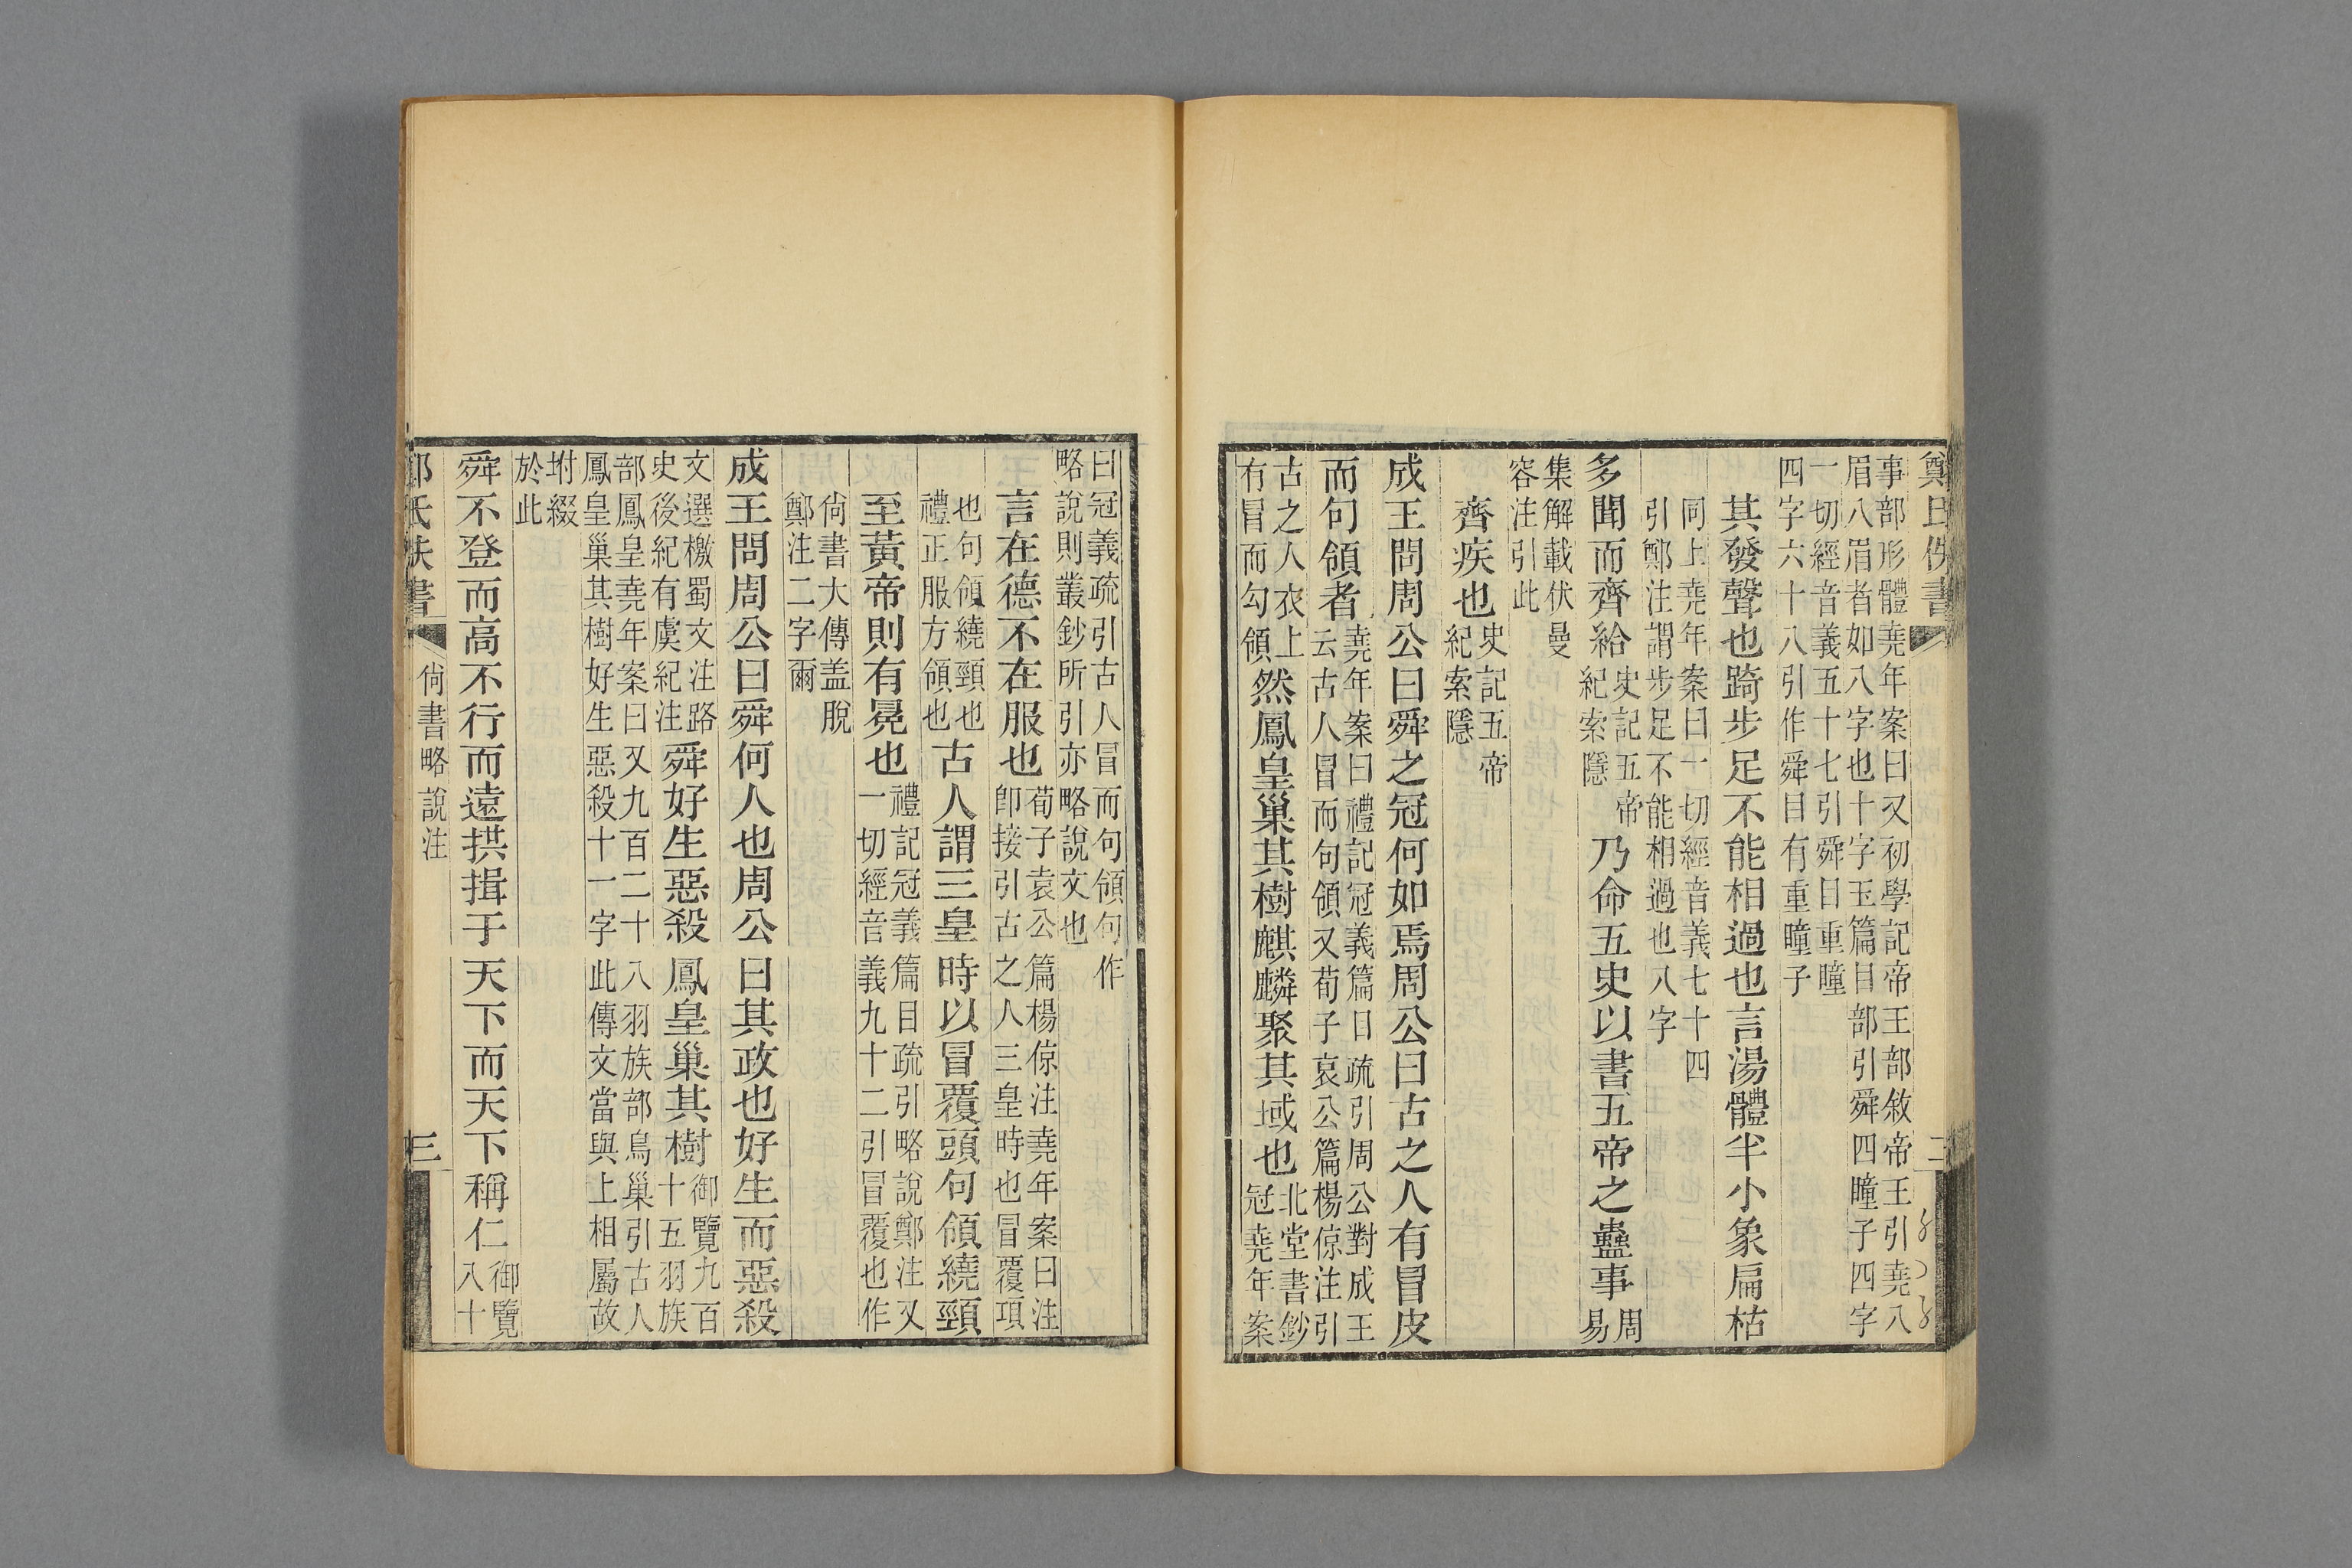 鄭氏佚書
事部形體堯年案曰又初學記帝王部敘帝王引堯八
眉八眉者如八字也十字玉篇目部引舜四瞳子四字
一切經音義五十七引舜目重瞳
四字六十八引作舜目有重瞳子
其發聲也踦步足不能相過也言湯體半小象扁枯
同上堯年案曰一切經音義七十四
引鄭注謂步足不能相過也八字
多聞而齊給
史記五帝
紀索隱
乃命五史以書五帝之蠱事
周
易
集解載伏曼
容注引此
齊疾也
史記五帝
紀索隱
成王問周公曰舜之冠何如焉周公曰古之人有冒皮
而句領者
堯年案曰禮記冠義篇目疏引周公對成王
云古人冒而句領又荀子哀公篇楊倞注引
古之人衣上
有冒而勾領
然鳳皇巢其樹麒麟聚其域也
北堂書鈔
冠堯年案
曰冠義疏引古人冒而句領句作
略說則叢鈔所引亦略說文也
言在德不在服也
荀子袁公篇楊倞注堯年案曰注
卽接引古之人三皇時也冒覆項
也句領繞頸也
禮正服方領也
古人謂三皇時以冒覆頭句領繞頸
至黃帝則有冕也
禮記冠義篇目疏引略說鄭注又
一切經音義九十二引冒覆也作
尙書大傳盖脫
鄭注二字爾
成王問周公曰舜何人也周公曰其政也好生而惡殺
文選檄蜀文注路
史後紀有虞紀注
舜好生惡殺鳳皇巢其樹
御覽九百
十五羽族
部鳳皇堯年案曰又九百二十八羽族部鳥巢引古人
鳳皇巢其樹好生惡殺十一字此傳文當與上相屬故
坿綴
於此
舜不登而高不行而遠拱揖于天下而天下稱仁
御覽
八十
氏佚書
尙書略說注
三